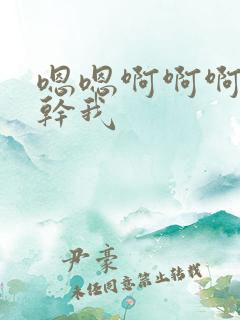 嗯嗯啊啊啊
幹我
尹豪
未经同意禁止转载